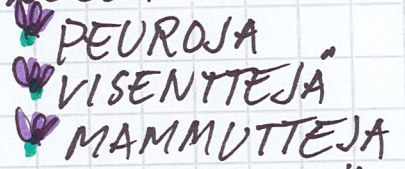 PEUROJA
VISENTTEJÄ
MAMMUTTEJA